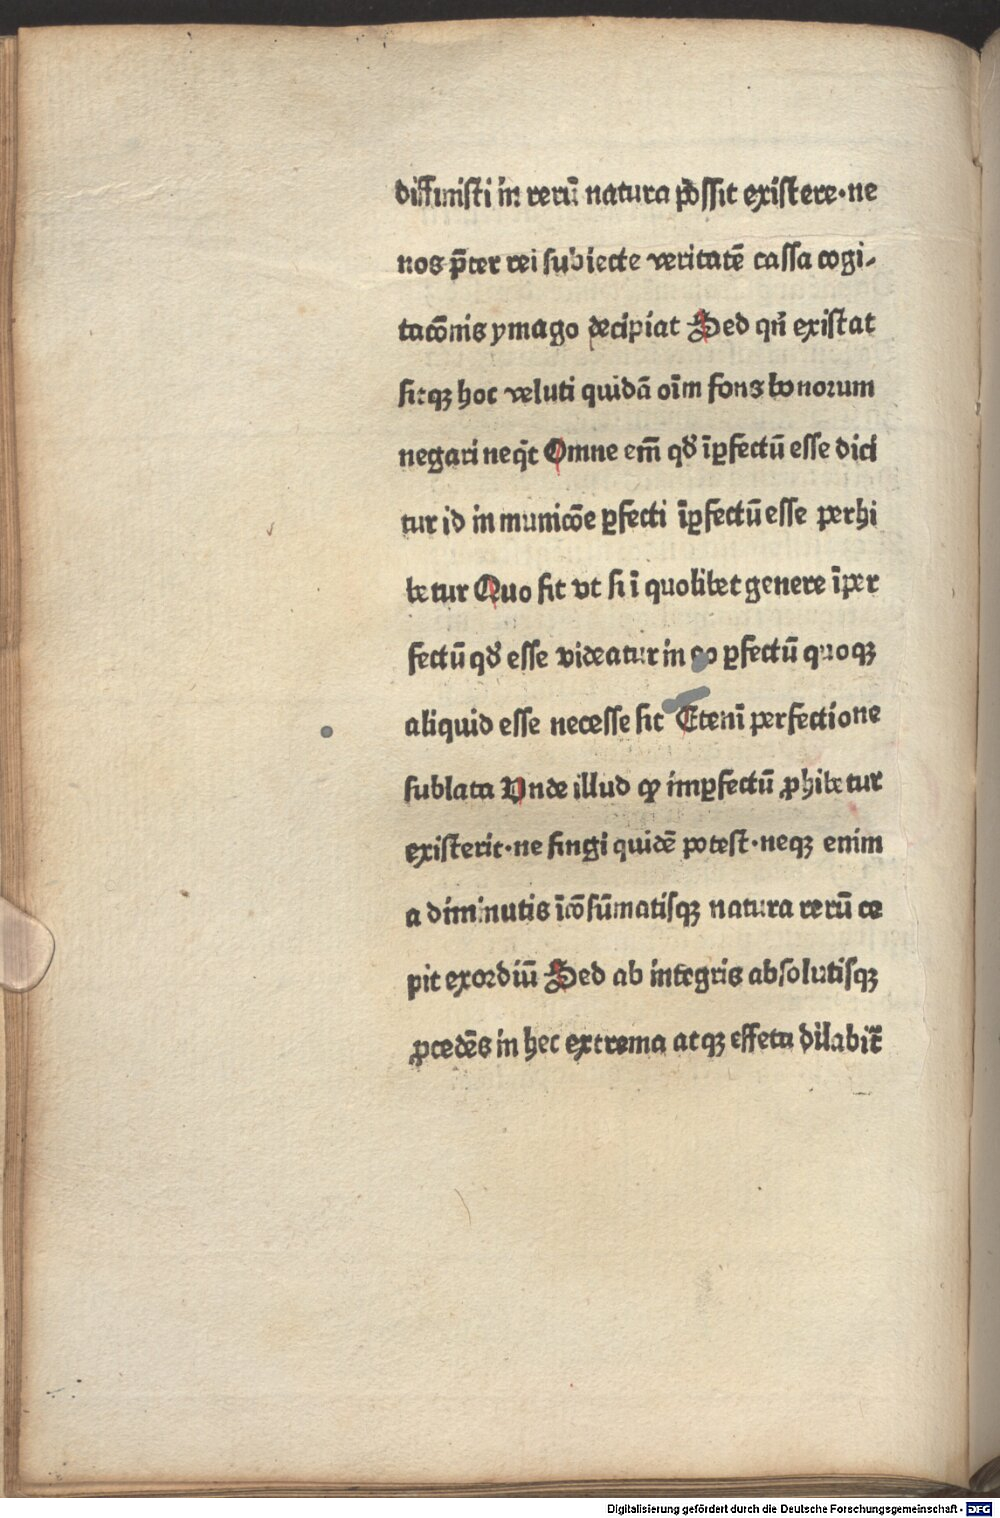 diffinisti in rerū natura possit existere·ne
nos p̄ter rei subiecte veritatē cassa cogi-
tacōnis ymago decipiat Sed qn̄ existat
sitqꝫ hoc veluti quidā oīm fons bonorum
negari neq̇t Omne em̄ qd̕ īꝑfectū esse dici
tur id in municōe ꝑfecti īꝑfectū esse perhi
betur Quo fit vt si ī quolibet genere īper
fectū qd̕ esse videatur in eo ꝑfectū quoqꝫ
aliquid esse necesse sit Etenī perfectione
sublata Vnde illud ꝙ imꝑfectū ꝓhibetur
existerit·ne fingi quidē potest·neqꝫ enim
a diminutis īcōsūmatisqꝫ natura rerū ce
pit exordiū Sed ab integris absolutisqꝫ
ꝓcedēs in hec extrema atqꝫ effeta dilabit̄
Digitalisierung gefördert durch die Deutsche Forschungsgemeinschaft - DFG